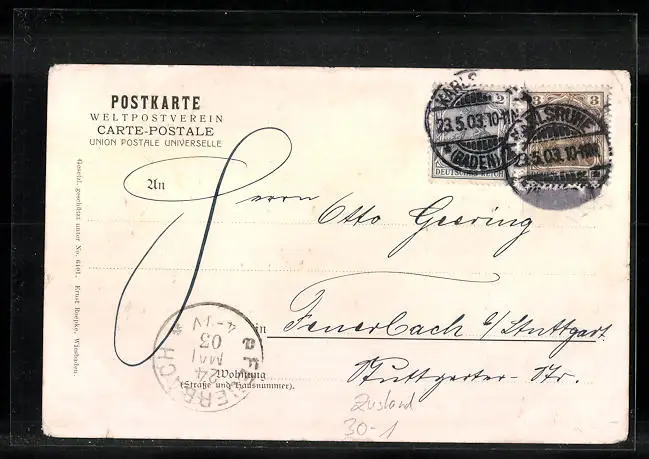 POSTKARTE
WELTPOSTVEREIN
CARTE-POSTALE
UNION POSTALE UNIVERSELLE
2
DEUTSCHES REICH
3 3
KARLS
23.5.03.10-11V.
*(BADEN)
LSRUHE
23.5.03.10-11V.
An
Herrn
Otto Geering
in Feuerbach b/Stuttgart
Stuttgarter-Str.
Wohnung
(Straße und Hausnummer).
FEUERBACH
24
MAI
03
4-5N
Gesetzl. geschützt unter No. 6401. Ernst Roepke, Wiesbaden.
Zustand
30-1